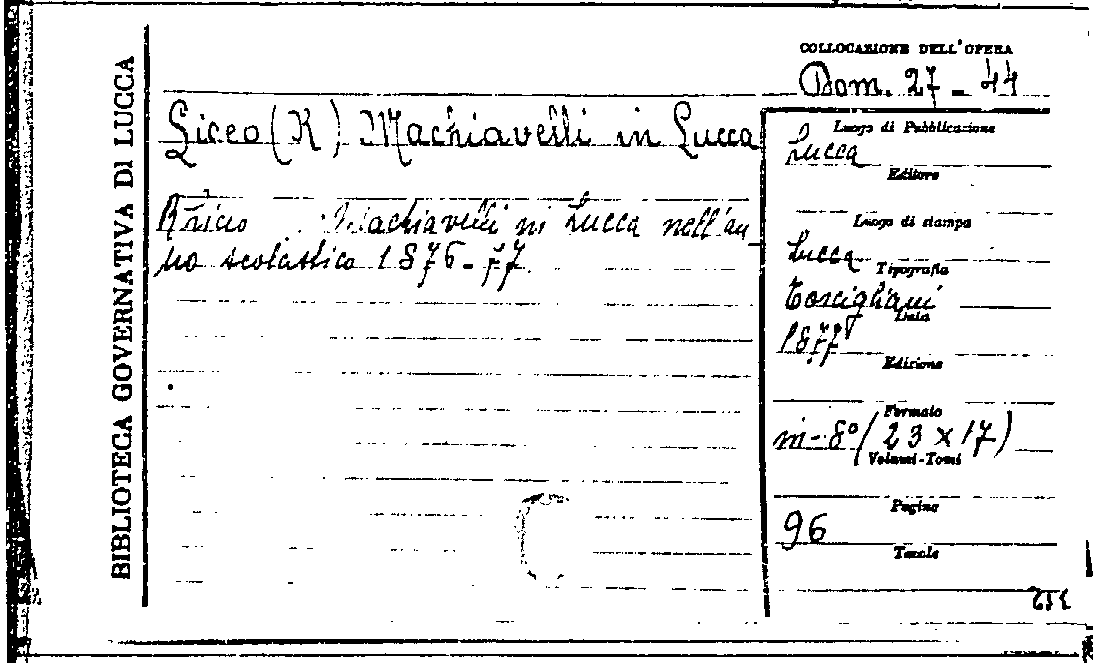 BIBLIOTECA GOVERNATIVA DI LUCCA
COLLOCAZIONE DELL'OPERA
Dom. 27 - 44
Liceo (R) Machiavelli in Lucca
Machiavelli in Lucca nell'an
no scolastico 1876-77.
Luogo di Pubblicazione
Lucca
Editore
Luogo di stampa
Lucca
Tipografia
Torcigliani
Data
1877
Edizione
Formato
in-8° (23 x 17)
Volumi-Tomi
Pagine
96
Tavole